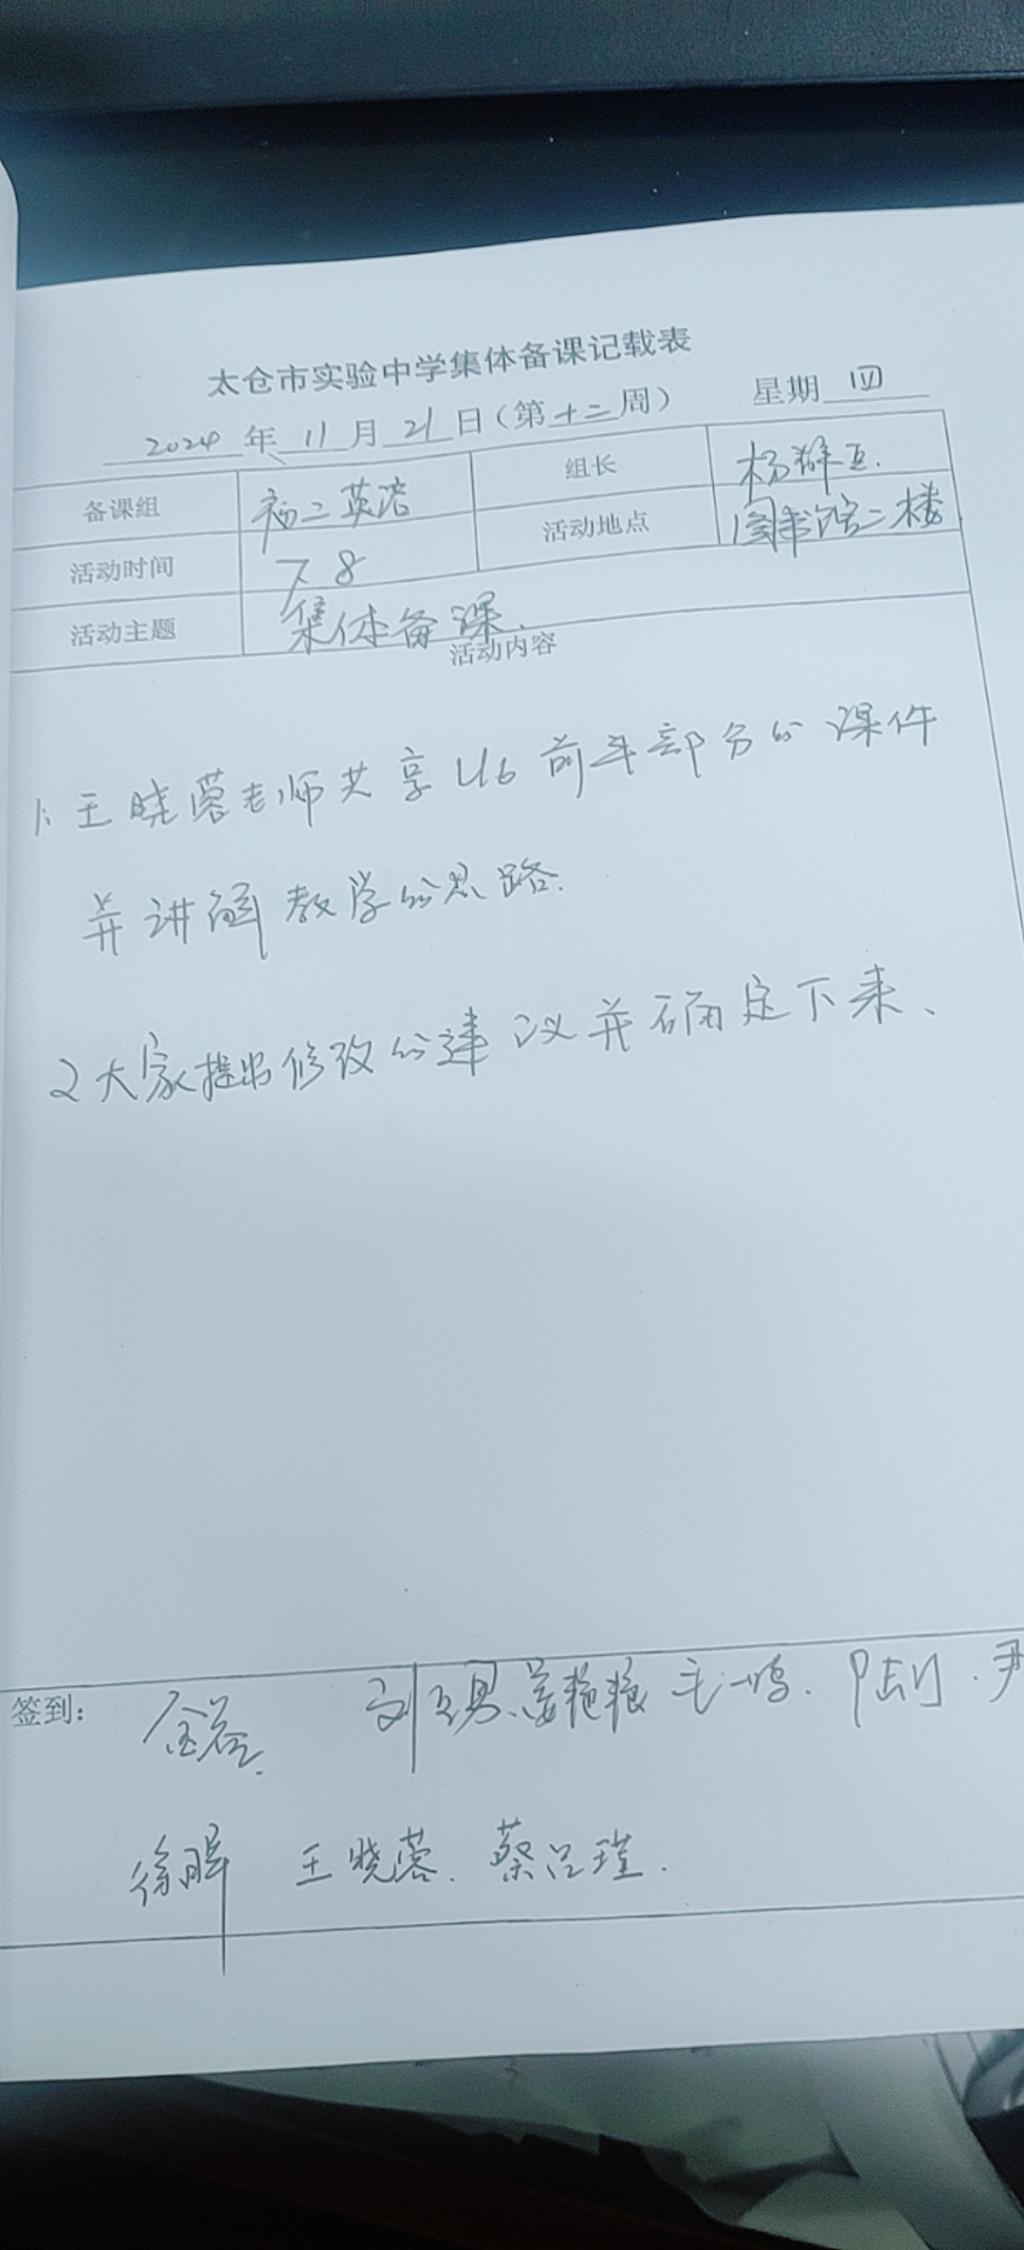 太仓市实验中学集体备课记载表
2024 年 11 月 21 日（第十二周） 星期 四
备课组 初二英语 组长 杨
活动时间 7 8 活动地点 图书馆二楼
活动主题 集体备课.
活动内容
1. 王晓蓉老师共享U6前半部分的课件
并讲解教学的思路.
2 大家提出修改的建议并确定下来、
签到：
徐晖 王晓蓉. 蔡吕瑾.